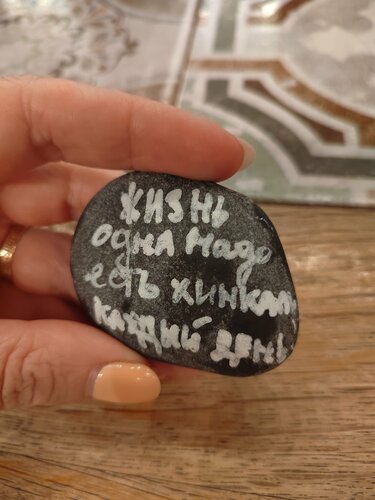 жизнь
одна надо
есть хинкали
каждый день